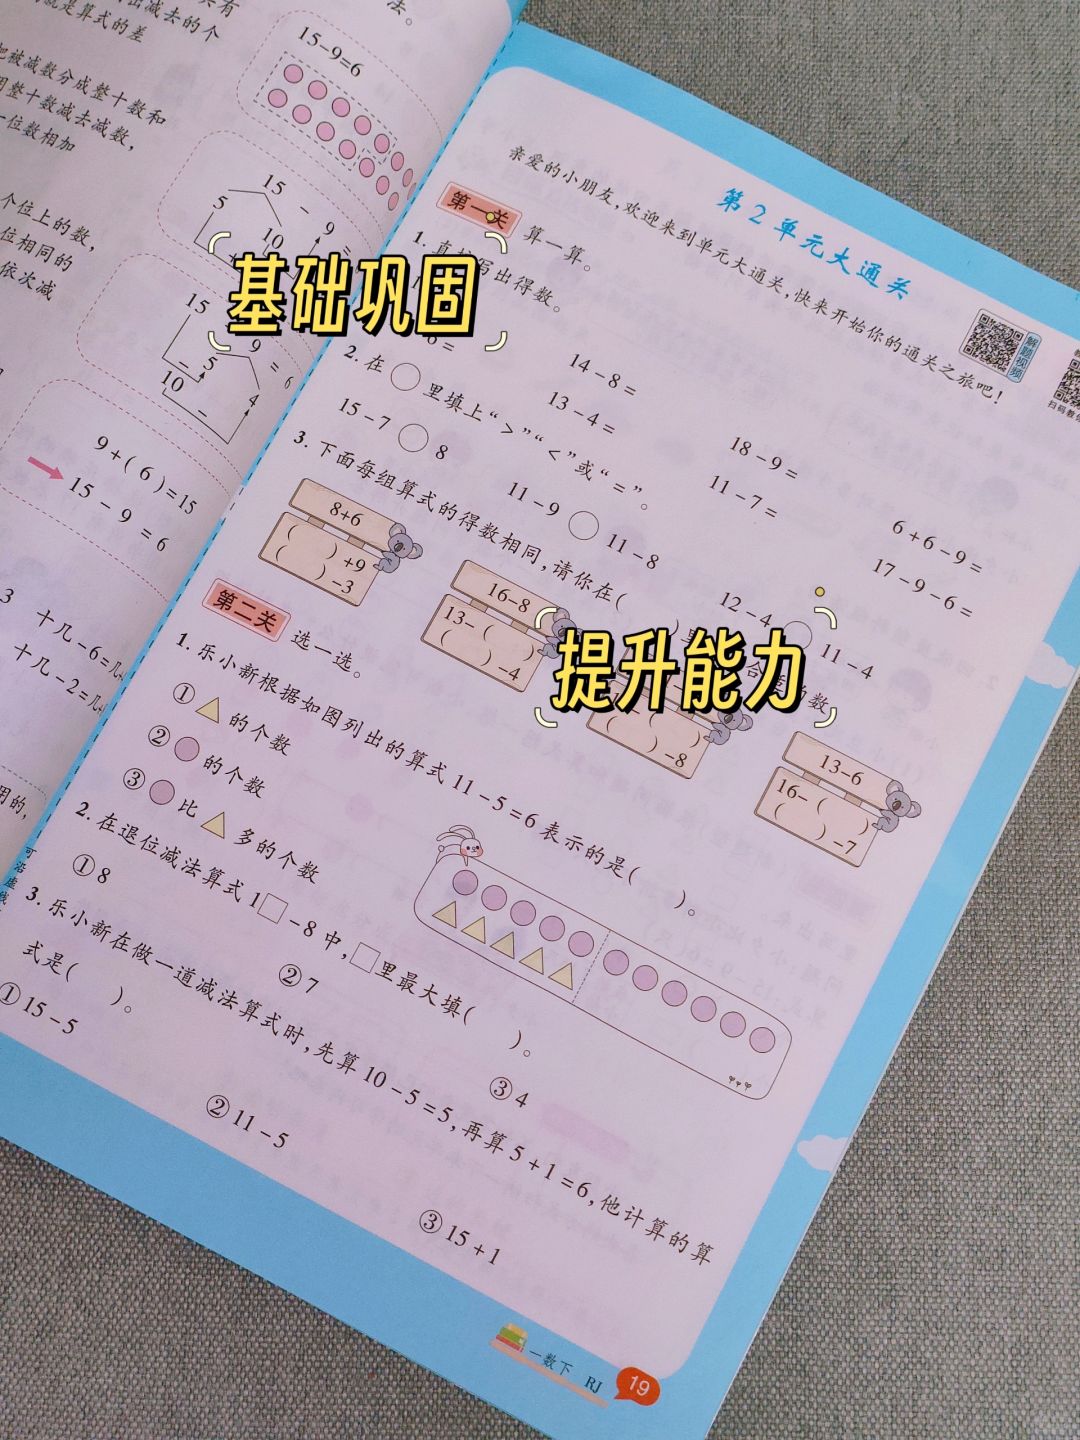 具有
法。
出减去的个
就是算式的差
15-9=6
把被减数分成整十数和
用整十数减去减数,
一位数相加
15 - 9 =
5 10
个位上的数,
位相同的
依次减
15
- 5
10 -
9 = 6
4
9+(6)=15
15-9=6
3
十几-6=几
十几-2=几
用的,
可沿虚线
基础巩固
提升能力
第2单元大通关
亲爱的小朋友,欢迎来到单元大通关,快来开始你的通关之旅吧!
解题视频
第一关 算一算。
1. 写出得数。
6=
14-8=
18-9=
6+6-9=
13-4=
11-7=
17-9-6=
2. 在○里填上“>”“<”或“=”。
15-7○8
11-9○11-8
12-4○11-4
3. 下面每组算式的得数相同,请你在(
的数
8+6
( )+9
( )-3
16-8
13-(
( )-4
( )
( )-8
13-6
16-( )
( )-7
第二关 选一选。
1. 乐小新根据如图列出的算式11-5=6表示的是( )。
①△的个数
②○的个数
③○比△多的个数
2. 在退位减法算式1□-8中,□里最大填( )。
①8
②7
③4
3. 乐小新在做一道减法算式时,先算10-5=5,再算5+1=6,他计算的算
式是( )。
①15-5
②11-5
③15+1
一数下 RJ
19